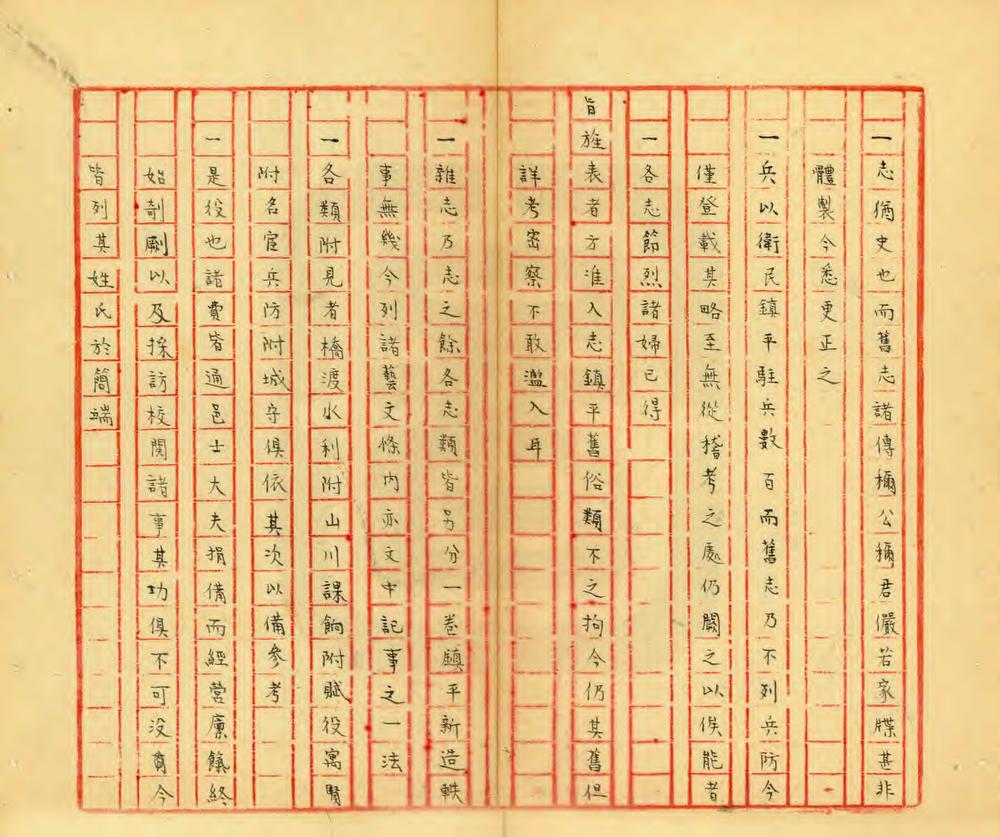 一志猶史也而舊志諸傳稱公稱君儼若家牒甚非
體製今悉更正之
一兵以衛民鎮平駐兵數百而舊志乃不列兵防今
僅登載其略至無從稽考之處仍闕之以俟能者
一各志節烈諸婦已得
旨旌表者方准入志鎮平舊俗類不之拘今仍其舊但
詳考密察不敢濫入耳
一雜志乃志之餘各志類皆另分一卷鎮平新造軼
事無幾今列諸藝文條內亦文中記事之一法
一各類附見者橋渡水利附山川課餉附賦役寓賢
附名宦兵防附城守俱依其次以備參考
一是役也諸費皆通邑士大夫捐備而經營廩餼終
始剞劂以及採訪校閱諸事其功俱不可沒爰今
皆列其姓氏於簡端